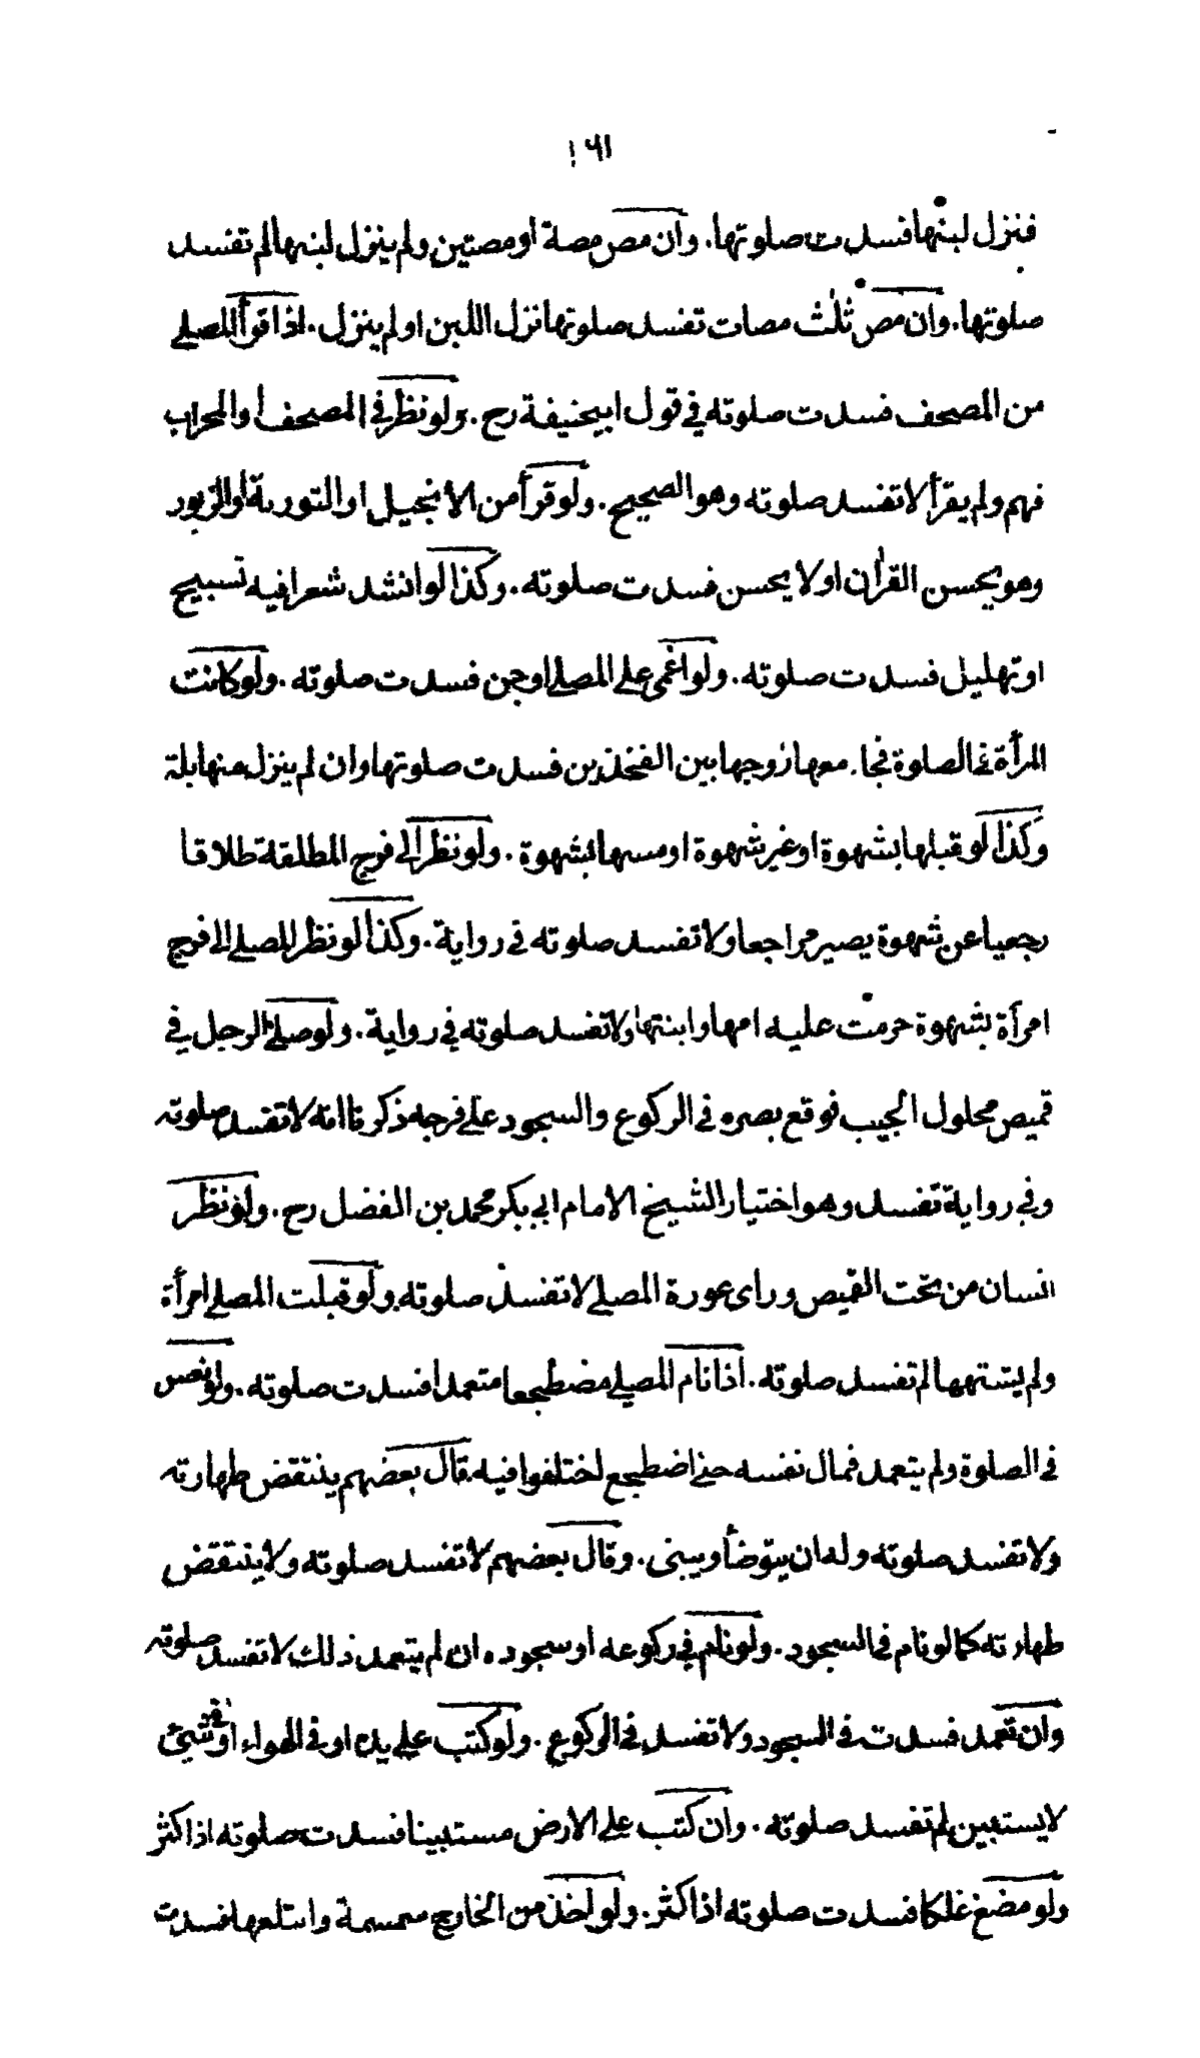 ١٦١
فنزل لبنها فسدت صلوتها. وان مص مصة او مصتين ولم ينزل لبنها لم تفسد
صلوتها. وان مص ثلث مصات تفسد صلوتها نزل اللبن او لم ينزل. اذا قرأ المصلي
من المصحف فسدت صلوته في قول ابيحنيفة رح. ولو نظر في المصحف او المحراب
فهم ولم يقرأ لا تفسد صلوته وهو الصحيح. ولو قرأ من الانجيل او التورىة او الزبور
وهو يحسن القرأن او لا يحسن فسدت صلوته. وكذا لو انشد شعرا فيه تسبيح
او تهليل فسدت صلوته. ولو اغمى على المصلي او جن فسدت صلوته. ولو كانت
المرأة في الصلوة فجا معها زوجها بين الفخذين فسدت صلوتها وان لم ينزل منها بلة
وكذا لو قبلها بشهوة او غير شهوة او مسها بشهوة. ولو نظر الى فرج المطلقة طلاقا
رجعيا عن شهوة يصير مراجعا ولا تفسد صلوته في رواية. وكذا لو نظر المصلي الى فرج
امرأة بشهوة حرمت عليه امها وابنتها ولا تفسد صلوته في رواية. ولو صلى الرجل في
قميص محلول الجيب فوقع بصره في الركوع والسجود على فرجه ذكرنا انه لا تفسد صلوته
وفي رواية تفسد وهو اختيار الشيخ الامام ابي بكر محمد بن الفضل رح. ولو نظر
انسان من تحت القميص وراى عورة المصلي لا تفسد صلوته. ولو قبلت المصلي امرأة
ولم يشتهها لم تفسد صلوته. اذا نام المصلي مضطجعا متعمدا فسدت صلوته. ولو نعس
في الصلوة ولم يتعمد فمال نفسه حتى اضطجع اختلفوا فيه. قال بعضهم ينتقض طهارته
ولا تفسد صلوته وله ان يتوضأ ويبنى. وقال بعضهم لا تفسد صلوته ولا ينتقض
طهارته كما لو نام في السجود. ولو نام في ركوعه او سجوده ان لم يتعمد ذلك لا تفسد صلوته
وان تعمد فسدت في السجود ولا تفسد في الركوع. ولو كتب على يده او في الهواء او في شيئ
لا يستبين لم تفسد صلوته. وان كتب على الارض مستبينا فسدت صلوته اذا كثر
ولو مضغ علكا فسدت صلوته اذا كثر. ولو اخذ من الخارج سمسمة وابتلعها فسدت